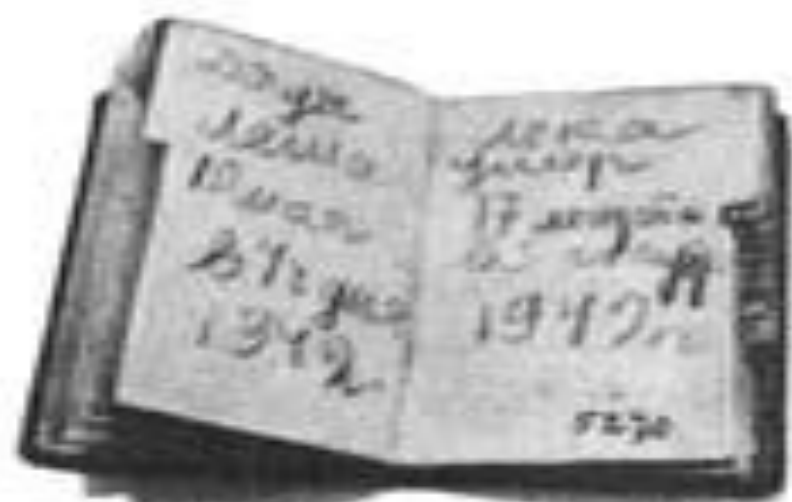 Дядя
Леша
10 мая
в 4 ч дня
1942
Лека
умер
17 марта
в
1942 г